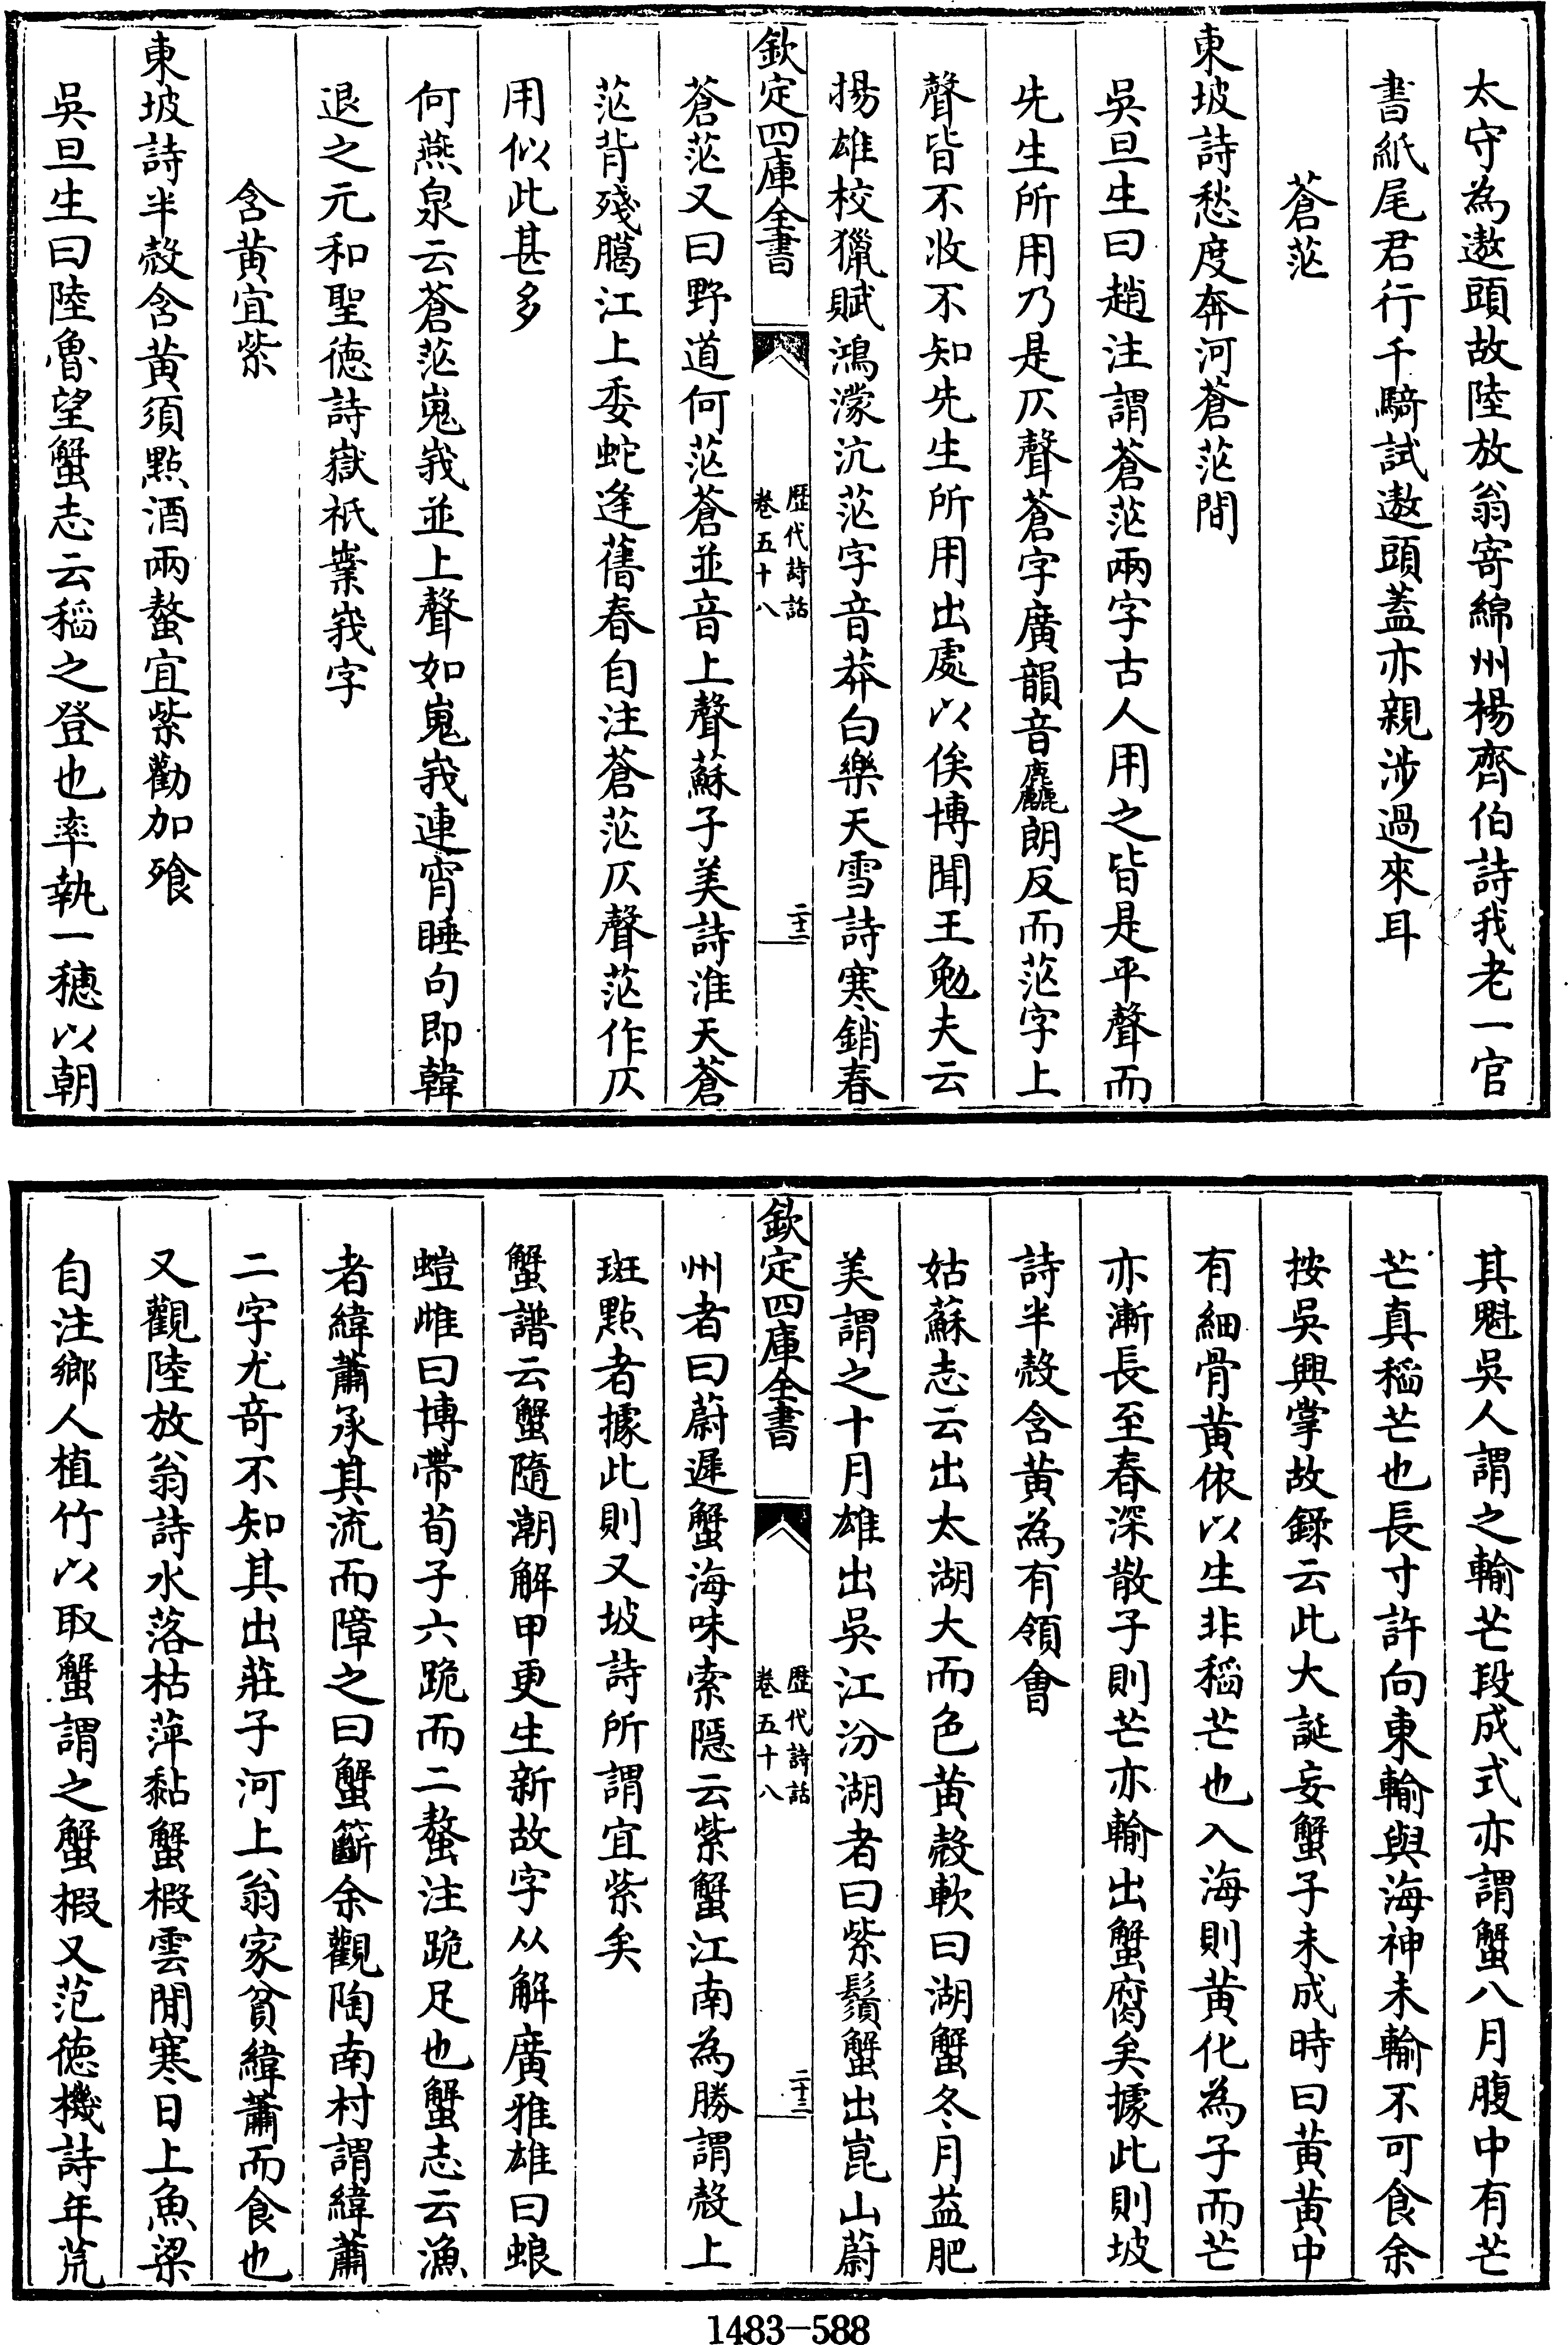 太守為遨頭故陸放翁寄綿州楊齊伯詩我老一官
書紙尾君行千騎試遨頭蓋亦親涉過來耳
蒼茫
東坡詩愁度奔河蒼茫間
吳旦生曰趙注謂蒼茫兩字古人用之皆是平聲而
先生所用乃是仄聲蒼字廣韻音麤朗反而茫字上
聲皆不收不知先生所用出處以俟博聞王勉夫云
揚雄校獵賦鴻濛沆茫字音莽白樂天雪詩寒銷春
欽定四庫全書
歷代詩話
卷五十八
二十二
蒼茫又曰野道何茫蒼並音上聲蘇子美詩淮天蒼
茫背殘臈江上委蛇逢舊春自注蒼茫仄聲茫作仄
用似此甚多
何燕泉云蒼茫嵬峩並上聲如嵬峩連宵睡句即韓
退之元和聖徳詩嶽祇嶪峩字
含黃宜紫
東坡詩半殼含黃須點酒兩螯宜紫勸加飱
吳旦生曰陸魯望蟹志云稻之登也率執一穗以朝
其魁吳人謂之輸芒段成式亦謂蟹八月腹中有芒
芒真稻芒也長寸許向東輸與海神未輸不可食余
按吳興掌故錄云此大誕妄蟹子未成時曰黃黃中
有細骨黃依以生非稻芒也入海則黃化為子而芒
亦漸長至春深散子則芒亦輸出蟹腐矣據此則坡
詩半殼含黃為有領會
姑蘇志云出太湖大而色黃殼軟曰湖蟹冬月益肥
美謂之十月雄出吳江汾湖者曰紫鬚蟹出崑山蔚
欽定四庫全書
歷代詩話
卷五十八
二十三
州者曰蔚遲蟹海味索隱云紫蟹江南為勝謂殼上
斑點者據此則又坡詩所謂宜紫矣
蟹譜云蟹隨潮解甲更生新故字从解廣雅雄曰蜋
螘雌曰博帶荀子六跪而二螯注跪足也蟹志云漁
者緯蕭承其流而障之曰蟹籪余觀陶南村謂緯蕭
二字尤奇不知其出莊子河上翁家貧緯蕭而食也
又觀陸放翁詩水落枯萍黏蟹椵雲閒寒日上魚梁
自注鄉人植竹以取蟹謂之蟹椵又范徳機詩年荒
1483-588